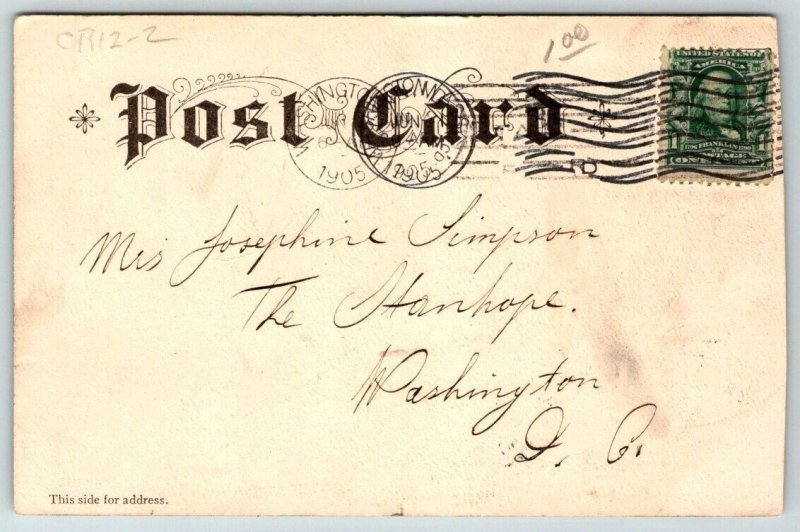 CR12-2
1.00
Post Card
WASHINGTON
JUN
6
1905
JUN
1905
UNITED STATES
AMERICA
1706 FRANKLIN 1790
ONE CENT
Mis Josephine Simpson
The Stanhope.
Washington
D. C.
This side for address.